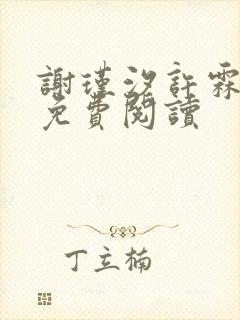 謝瑾汐許霖
免費閱讀
丁立楠